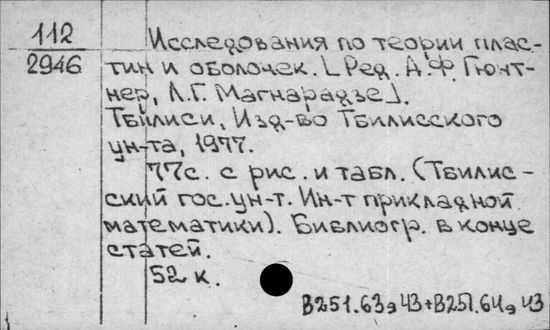 112
2946
Исследования по теории плас-
тин и оболочек. [Ред. А.Ф. Гюнт-
нер, Л.Г. Магнарадзе].
Тбилиси, Изд-во Тбилисского
ун-та, 1977.
77с. с рис. и табл. (Тбилис-
ский гос. ун-т. Ин-т прикладной
математики). Библиогр. в конце
статей.
52 к.
В251.63я43+В251.64я43